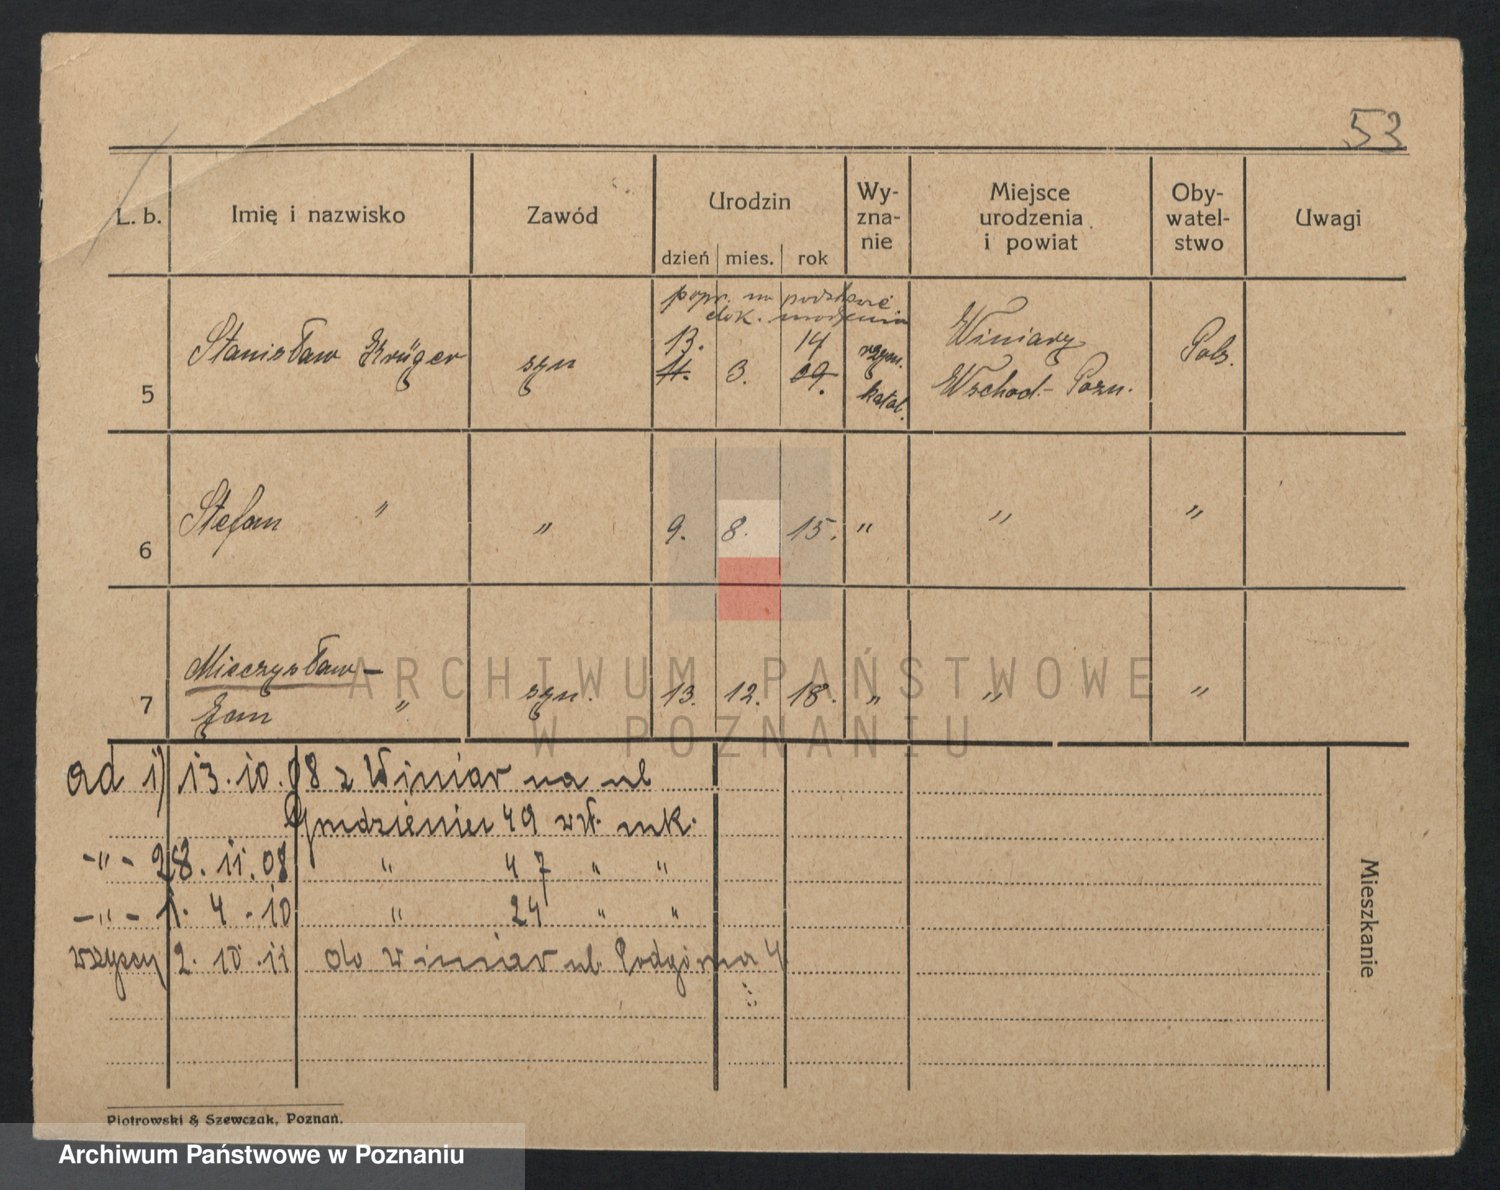 53
L. b. Imię i nazwisko Zawód Urodzin dzień mies. rok Wy-zna-nie Miejsce urodzenia i powiat Oby-watel-stwo Uwagi
popr. na podstawie
dok. urodzenia
5 Stanisław Krüger syn 13. 14 rzym. Winiary Pols.
11. 3. 09. katol. Wschod.- Pozn.
6 Stefan " " 9. 8. 15. " " "
7 Mieczysław- syn. 13. 12. 18. " " "
Jan "
ad 1) 13.10.08 z Winiar na ul
Grudzieniec 49 wł. mk.
-"- 28.11.08 " 47 " "
-"- 1.4.10 " 24 " "
wszyscy 2.10.11 do Winiar ul. Podgórna 4
Mieszkanie
Piotrowski & Szewczak, Poznań.
ARCHIWUM PAŃSTWOWE
W POZNANIU
Archiwum Państwowe w Poznaniu